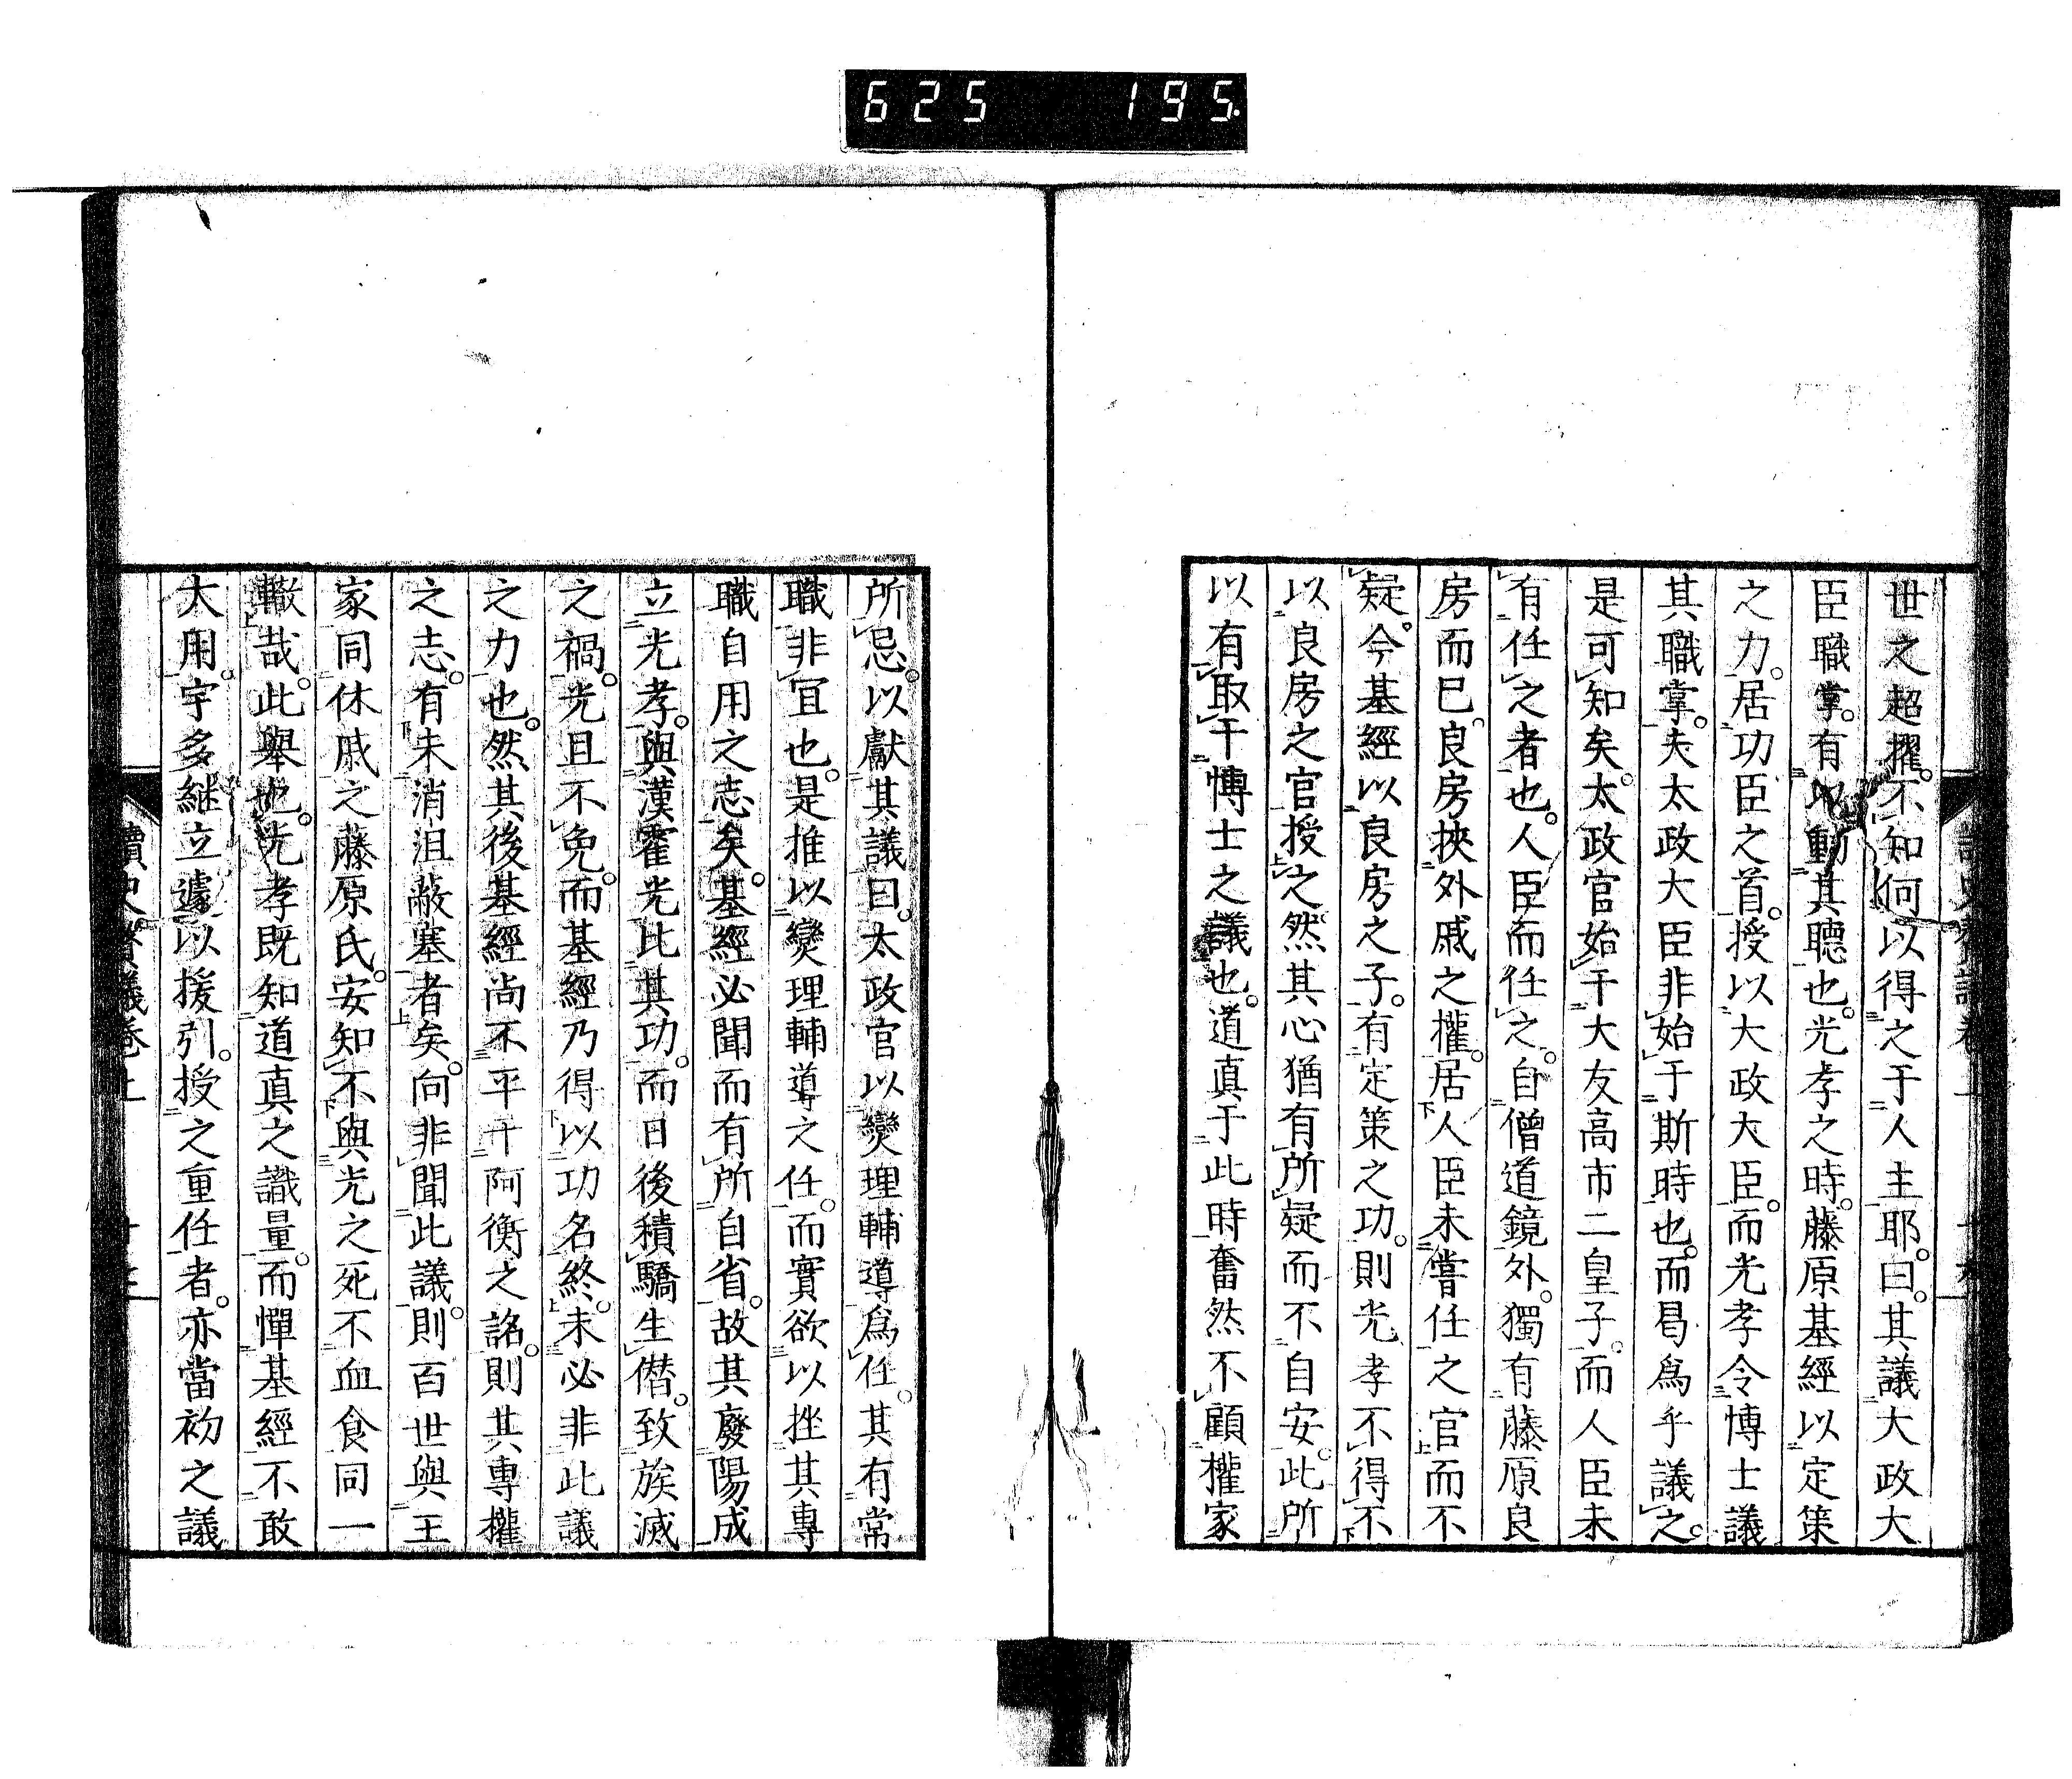 625 195.
世之超擢。不知何以得之于人主耶。曰。其議大政大
臣職掌。有以動其聽也。光孝之時。藤原基經以定策
之力。居功臣之首。授以大政大臣。而光孝令博士議
其職掌。夫太政大臣非始于斯時也。而曷爲乎議之。
是可知矣。太政官始于大友高市二皇子。而人臣未
有任之者也。人臣而任之。自僧道鏡外。獨有藤原良
房而已。良房挾外戚之權。居人臣未嘗任之官而不
疑。今基經以良房之子。有定策之功。則光孝不得不
以良房之官授之。然其心猶有所疑而不自安。此所
以有取于博士之議也。道真于此時奮然不顧權家
所忌。以獻其議曰。太政官以燮理輔導爲任。其有常
職非宜也。是推以燮理輔導之任。而實欲以挫其專
職自用之志矣。基經必聞而有所自省。故其廢陽成
立光孝。與漢霍光比其功。而日後積驕生僭。致族滅
之禍。光且不免。而基經乃得以功名終。未必非此議
之力也。然其後基經尚不平于阿衡之詔。則其專權
之志。有未消沮蔽塞者矣。向非聞此議。則百世與王
家同休戚之藤原氏。安知不與光之死不血食同一
轍哉。此擧也。光孝既知道真之識量。而憚基經不敢
太用。宇多継立遽以援引。授之重任者。亦當初之議
讀史贅議卷上